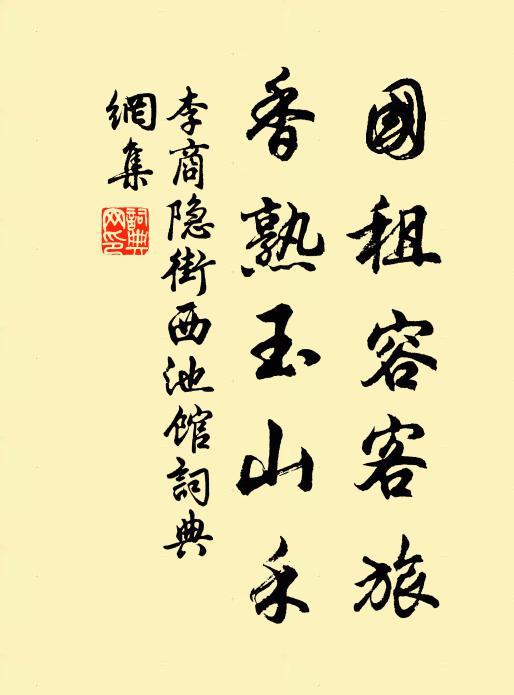 國租容客旅
香熟玉山禾
李商隐街西池館詞典
網集
詞典
网印